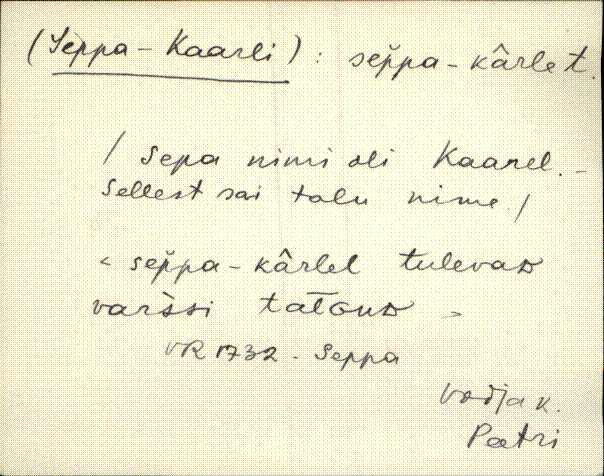 (Seppa - Kaarli) : sep̆pa - kârlet.
/ Sepa nimi oli Kaarel. -
Sellest sai talu nime /
< sep̆pa - kârlel tulevaD
varssi
VR 1732 - Seppa
Vodja k.
Peetri